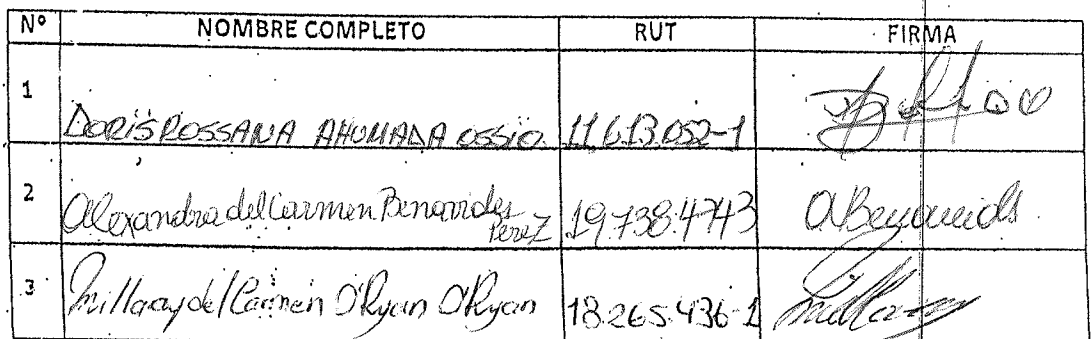 Nº NOMBRE COMPLETO RUT FIRMA
1 DORIS ROSSANA AHUMADA OSSIO 11.613.052-1
2 Alexandra del Carmen Benavides Perez 19.738.474-3 ABenavids
3 Millaray del Carmen O'Ryan O'Ryan 18.265.436-1 Millaray